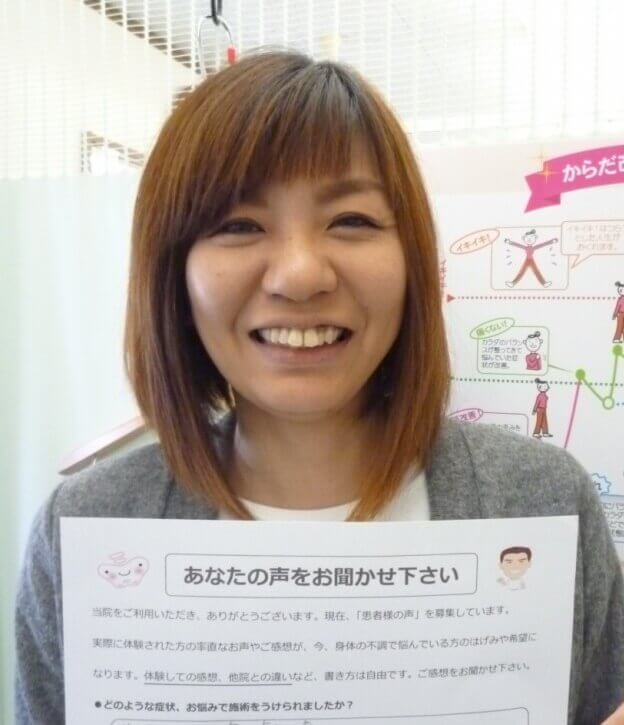 からだ
イキイキ!
イキイキ！はつらつ
とした人生が
おくれます。
イキイキ
痛くない!
カラダのバラン
スが整ってきて
悩んでいた症
状が改善。
改善!
あなたの声をお聞かせ下さい
当院をご利用いただき、ありがとうございます。現在、「患者様の声」を募集しています。
実際に体験された方の率直なお声やご感想が、今、身体の不調で悩んでいる方のはげみや希望に
なります。体験しての感想、他院との違いなど、書き方は自由です。ご感想をお聞かせ下さい。
●どのような症状、お悩みで施術をうけられましたか？